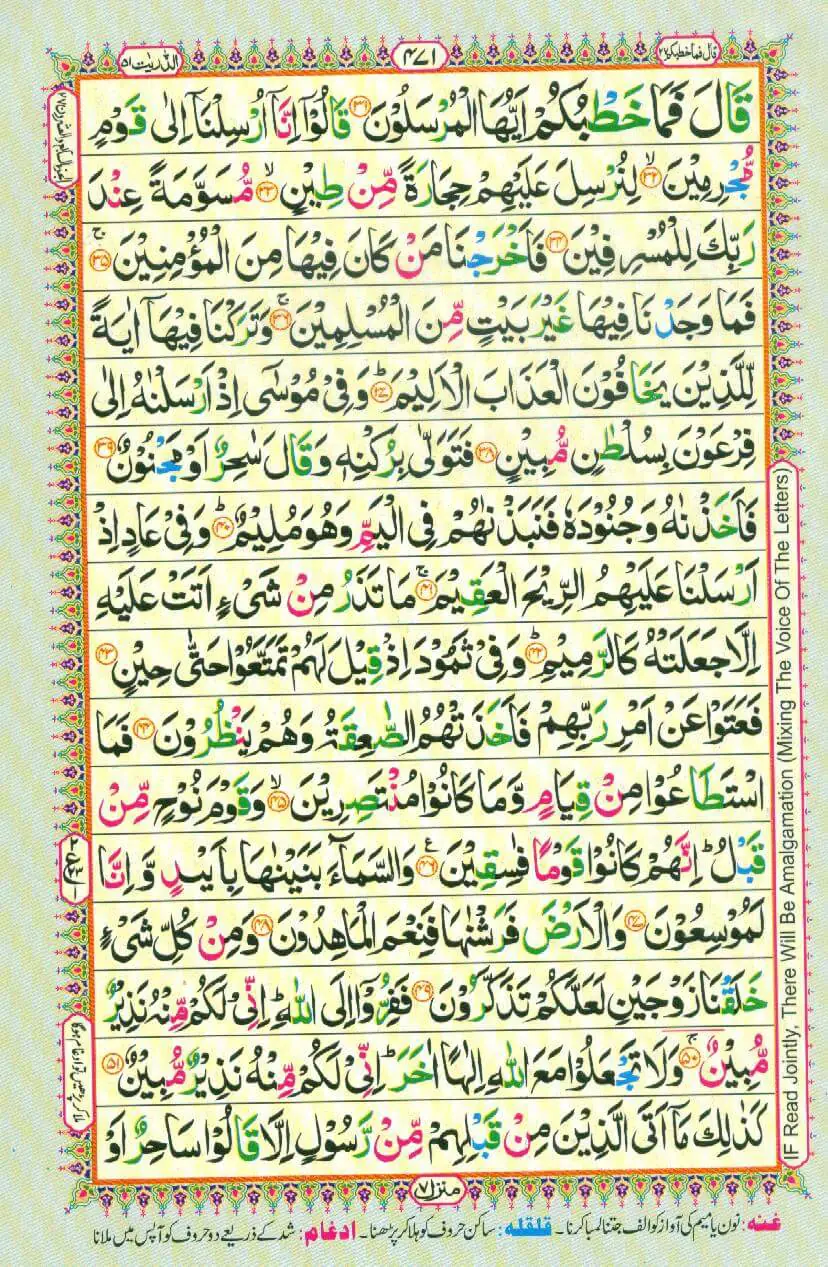 قال فما خطبكم ٢٧
٤٧١
الذّٰریٰت ٥١
قَالَ فَمَا خَطْبُكُمْ اَیُّهَا الْمُرْسَلُوْنَ ﴿٣١﴾ قَالُوْۤا اِنَّاۤ اُرْسِلْنَاۤ اِلٰى قَوْمٍ
مُّجْرِمِیْنَ ﴿٣٢﴾ۙ لِنُرْسِلَ عَلَیْهِمْ حِجَارَةً مِّنْ طِیْنٍ ﴿٣٣﴾ۙ مُّسَوَّمَةً عِنْدَ
رَبِّكَ لِلْمُسْرِفِیْنَ ﴿٣٤﴾ فَاَخْرَجْنَا مَنْ كَانَ فِیْهَا مِنَ الْمُؤْمِنِیْنَ ﴿٣٥﴾ۚ
فَمَا وَجَدْنَا فِیْهَا غَیْرَ بَیْتٍ مِّنَ الْمُسْلِمِیْنَ ﴿٣٦﴾ۚ وَتَرَكْنَا فِیْهَاۤ اٰیَةً
لِّلَّذِیْنَ یَخَافُوْنَ الْعَذَابَ الْاَلِیْمَ ﴿٣٧﴾ؕ وَفِیْ مُوْسٰۤى اِذْ اَرْسَلْنٰهُ اِلٰى
فِرْعَوْنَ بِسُلْطٰنٍ مُّبِیْنٍ ﴿٣٨﴾ فَتَوَلّٰى بِرُكْنِهٖ وَقَالَ سٰحِرٌ اَوْ مَجْنُوْنٌ ﴿٣٩﴾
فَاَخَذْنٰهُ وَجُنُوْدَهٗ فَنَبَذْنٰهُمْ فِی الْیَمِّ وَهُوَ مُلِیْمٌ ﴿٤٠﴾ؕ وَفِیْ عَادٍ اِذْ
اَرْسَلْنَا عَلَیْهِمُ الرِّیْحَ الْعَقِیْمَ ﴿٤١﴾ۚ مَا تَذَرُ مِنْ شَیْءٍ اَتَتْ عَلَیْهِ
اِلَّا جَعَلَتْهُ كَالرَّمِیْمِ ﴿٤٢﴾ؕ وَفِیْ ثَمُوْدَ اِذْ قِیْلَ لَهُمْ تَمَتَّعُوْا حَتّٰى حِیْنٍ ﴿٤٣﴾
فَعَتَوْا عَنْ اَمْرِ رَبِّهِمْ فَاَخَذَتْهُمُ الصّٰعِقَةُ وَهُمْ یَنْظُرُوْنَ ﴿٤٤﴾ فَمَا
اسْتَطَاعُوْا مِنْ قِیَامٍ وَّمَا كَانُوْا مُنْتَصِرِیْنَ ﴿٤٥﴾ۙ وَقَوْمَ نُوْحٍ مِّنْ
قَبْلُ ؕ اِنَّهُمْ كَانُوْا قَوْمًا فٰسِقِیْنَ ﴿٤٦﴾ع وَالسَّمَآءَ بَنَیْنٰهَا بِاَیْىدٍ وَّاِنَّا
لَمُوْسِعُوْنَ ﴿٤٧﴾ وَالْاَرْضَ فَرَشْنٰهَا فَنِعْمَ الْمٰهِدُوْنَ ﴿٤٨﴾ وَمِنْ كُلِّ شَیْءٍ
خَلَقْنَا زَوْجَیْنِ لَعَلَّكُمْ تَذَكَّرُوْنَ ﴿٤٩﴾ فَفِرُّوْۤا اِلَى اللّٰهِ ؕ اِنِّیْ لَكُمْ مِّنْهُ نَذِیْرٌ
مُّبِیْنٌ ﴿٥٠﴾ۚ وَلَا تَجْعَلُوْا مَعَ اللّٰهِ اِلٰهًا اٰخَرَ ؕ اِنِّیْ لَكُمْ مِّنْهُ نَذِیْرٌ مُّبِیْنٌ ﴿٥١﴾
كَذٰلِكَ مَاۤ اَتَى الَّذِیْنَ مِنْ قَبْلِهِمْ مِّنْ رَّسُوْلٍ اِلَّا قَالُوْا سَاحِرٌ اَوْ
IF Read Jointly, There Will Be Amalgamation (Mixing The Voice Of The Letters)
ملا کر پڑھیں تو ادغام ہوگا
منزل ٧
غنہ: نون یا میم کی آواز کو الف جتنا لمبا کرنا۔ قلقلہ: ساکن حروف کو ہلا کر پڑھنا۔ ادغام: شد کے ذریعے دو حروف کو آپس میں ملانا